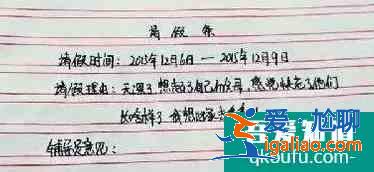 请假条
请假时间：2015年12月6日—2015年12月9日
请假理由：天涯了想念了自己的父母，感觉快忘了他们
长啥样了 我想回家去看看
爱尬聊
igalao.com
辅导员意见：
qkoufu.com